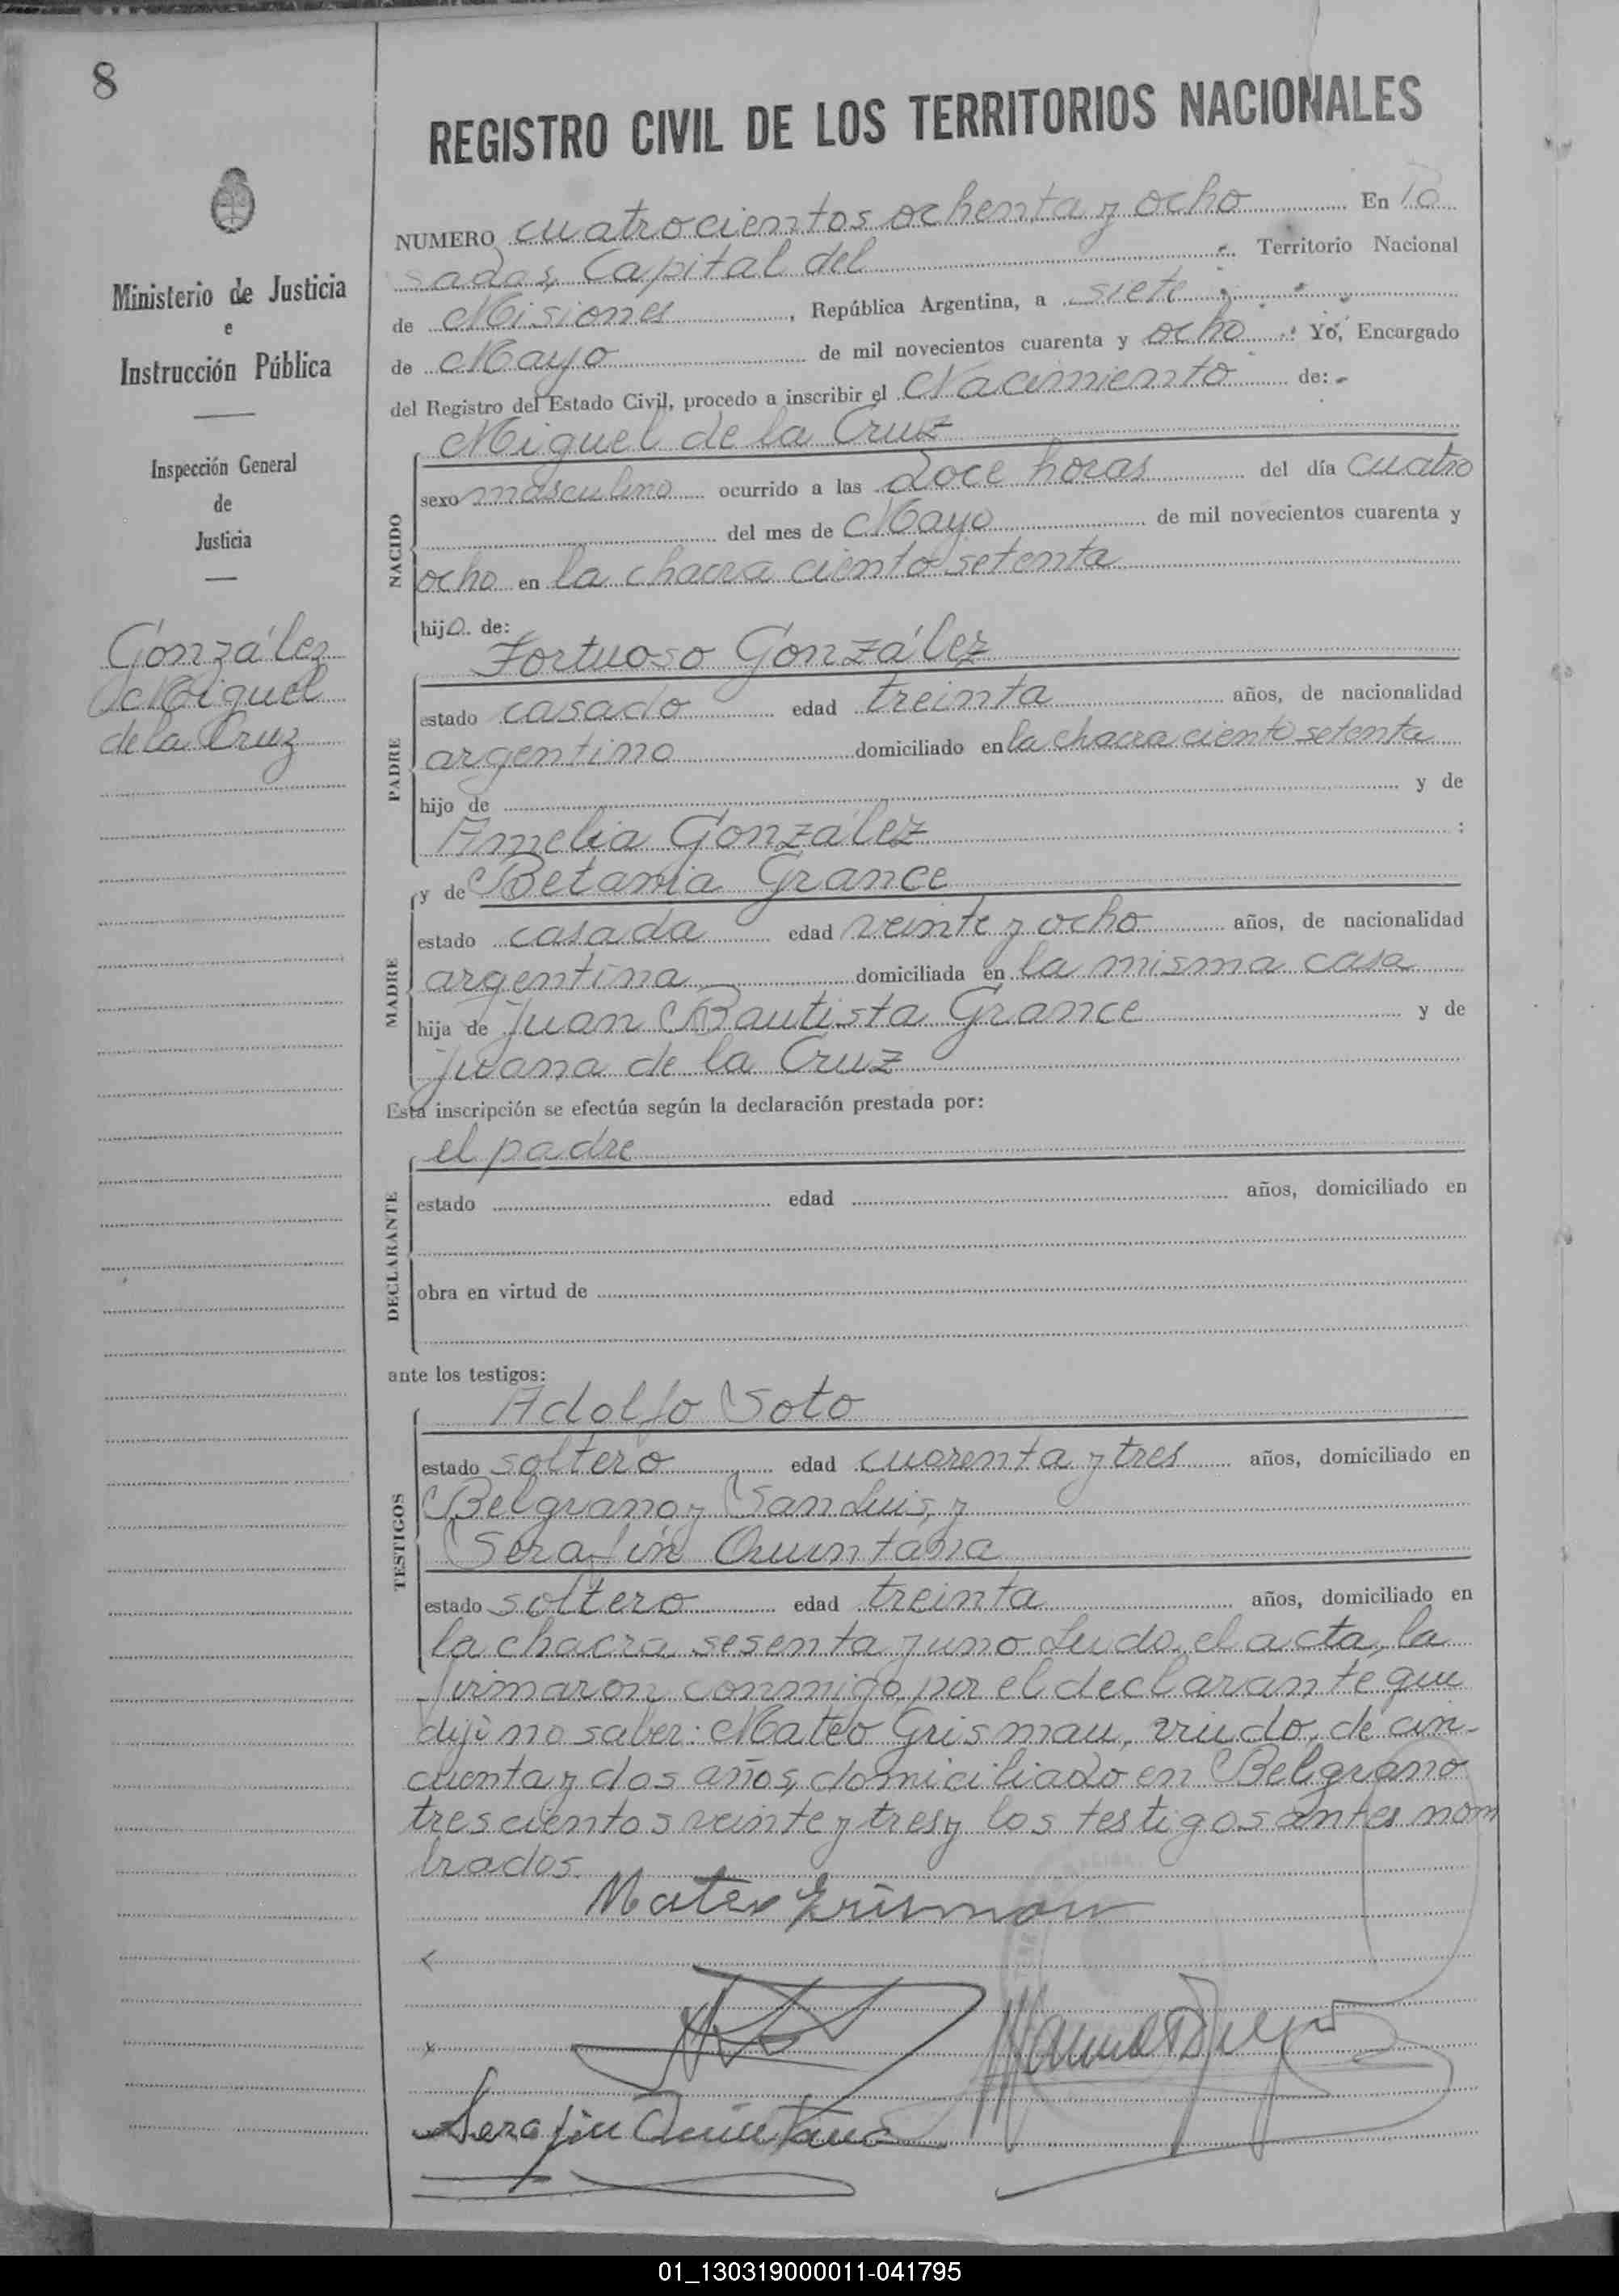 8
REGISTRO CIVIL DE LOS TERRITORIOS NACIONALES
Ministerio de Justicia
e
Instrucción Pública
Inspección General
de
Justicia
González
Miguel
de la Cruz
NUMERO cuatrocientos ochenta y ocho En Po
sadas, Capital del Territorio Nacional
de Misiones, República Argentina, a siete
de Mayo de mil novecientos cuarenta y ocho. Yo, Encargado
del Registro del Estado Civil, procedo a inscribir el Nacimiento de:-
Miguel de la Cruz
NACIDO
sexo masculino ocurrido a las doce horas del día cuatro
del mes de Mayo de mil novecientos cuarenta y
ocho en la chacra ciento setenta
hijo de:
Fortuoso González
PADRE
estado casado edad treinta años, de nacionalidad
argentino domiciliado en la chacra ciento setenta
hijo de y de
Amelia González :
y de Betania Grance
MADRE
estado casada edad veinte y ocho años, de nacionalidad
argentina domiciliada en la misma casa
hija de Juan Bautista Grance y de
Juana de la Cruz
Esta inscripción se efectúa según la declaración prestada por:
el padre
DECLARANTE
estado edad años, domiciliado en
obra en virtud de
ante los testigos:
Adolfo Soto
TESTIGOS
estado soltero edad cuarenta y tres años, domiciliado en
Belgrano y San Luis, y
Serafín Quintana
estado soltero edad treinta años, domiciliado en
la chacra sesenta y uno. Leida el acta, la
firmaron conmigo, por el declarante que
dijo no saber: Mateo Grismau, viudo, de cin-
cuenta y dos años, domiciliado en Belgrano
trescientos veinte y tres y los testigos antes nom
brados.
Mateo Grismau
Serafin Quintana
01_130319000011-041795